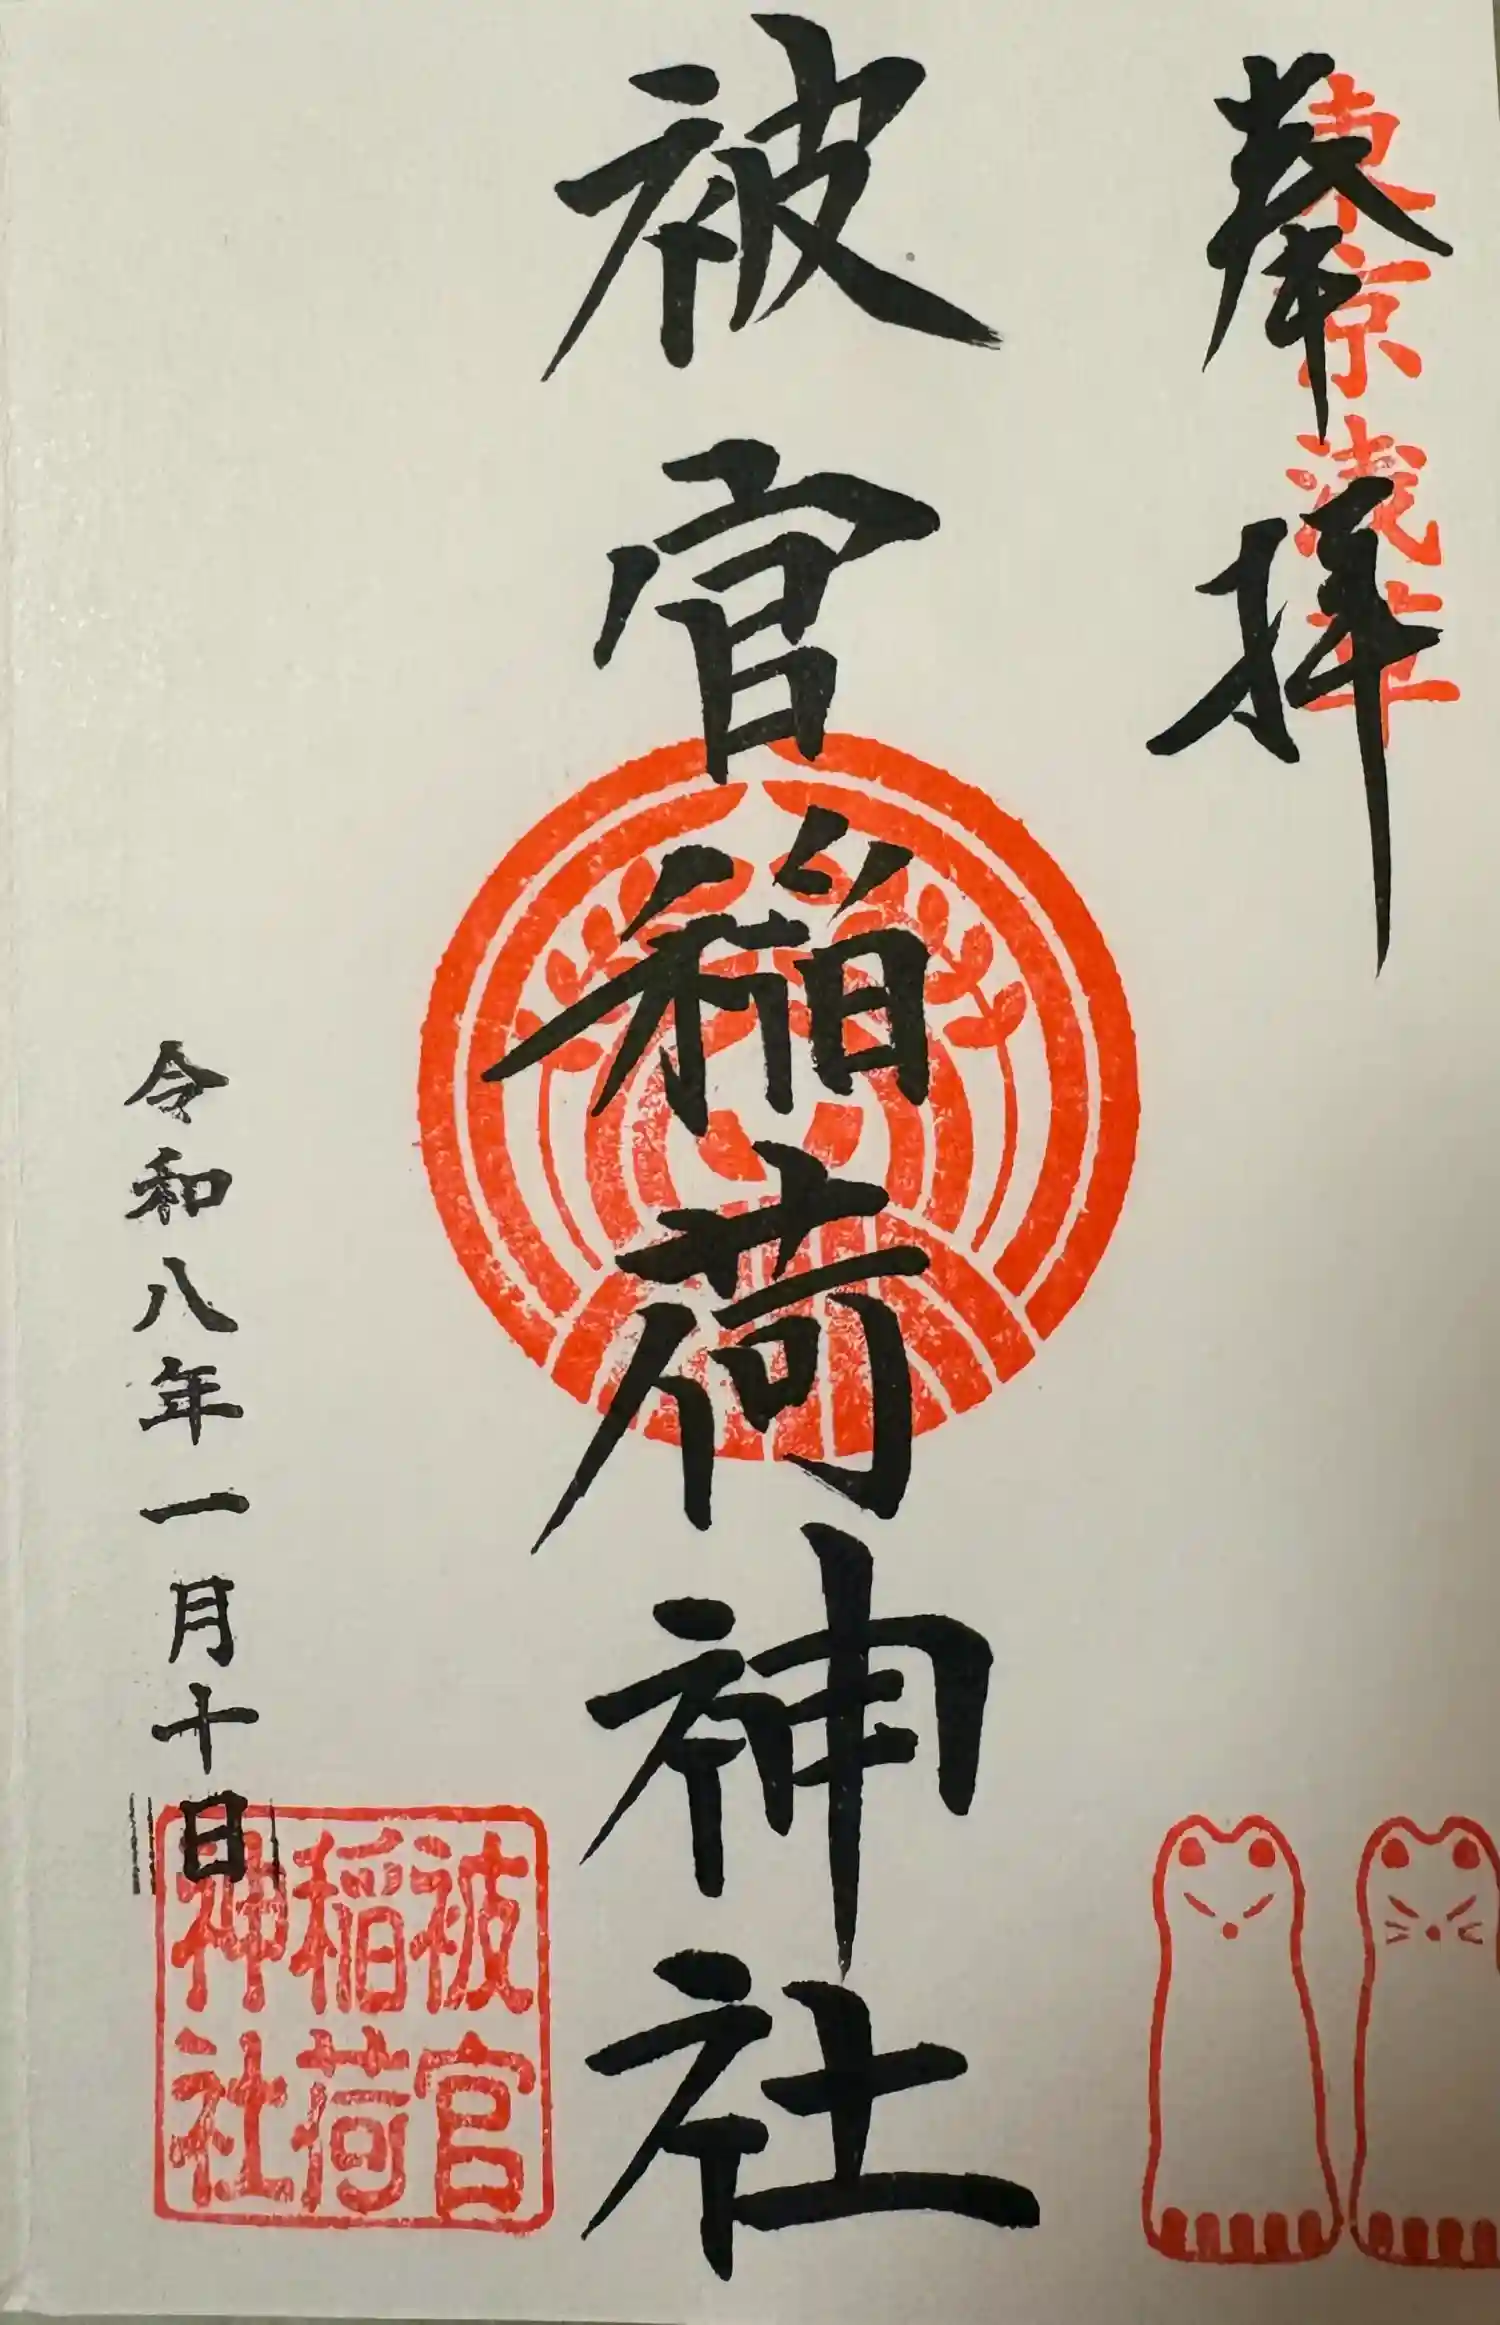 東京浅草
奉拝
被官稲荷神社
令和八年一月十日
被官
稲荷
神社